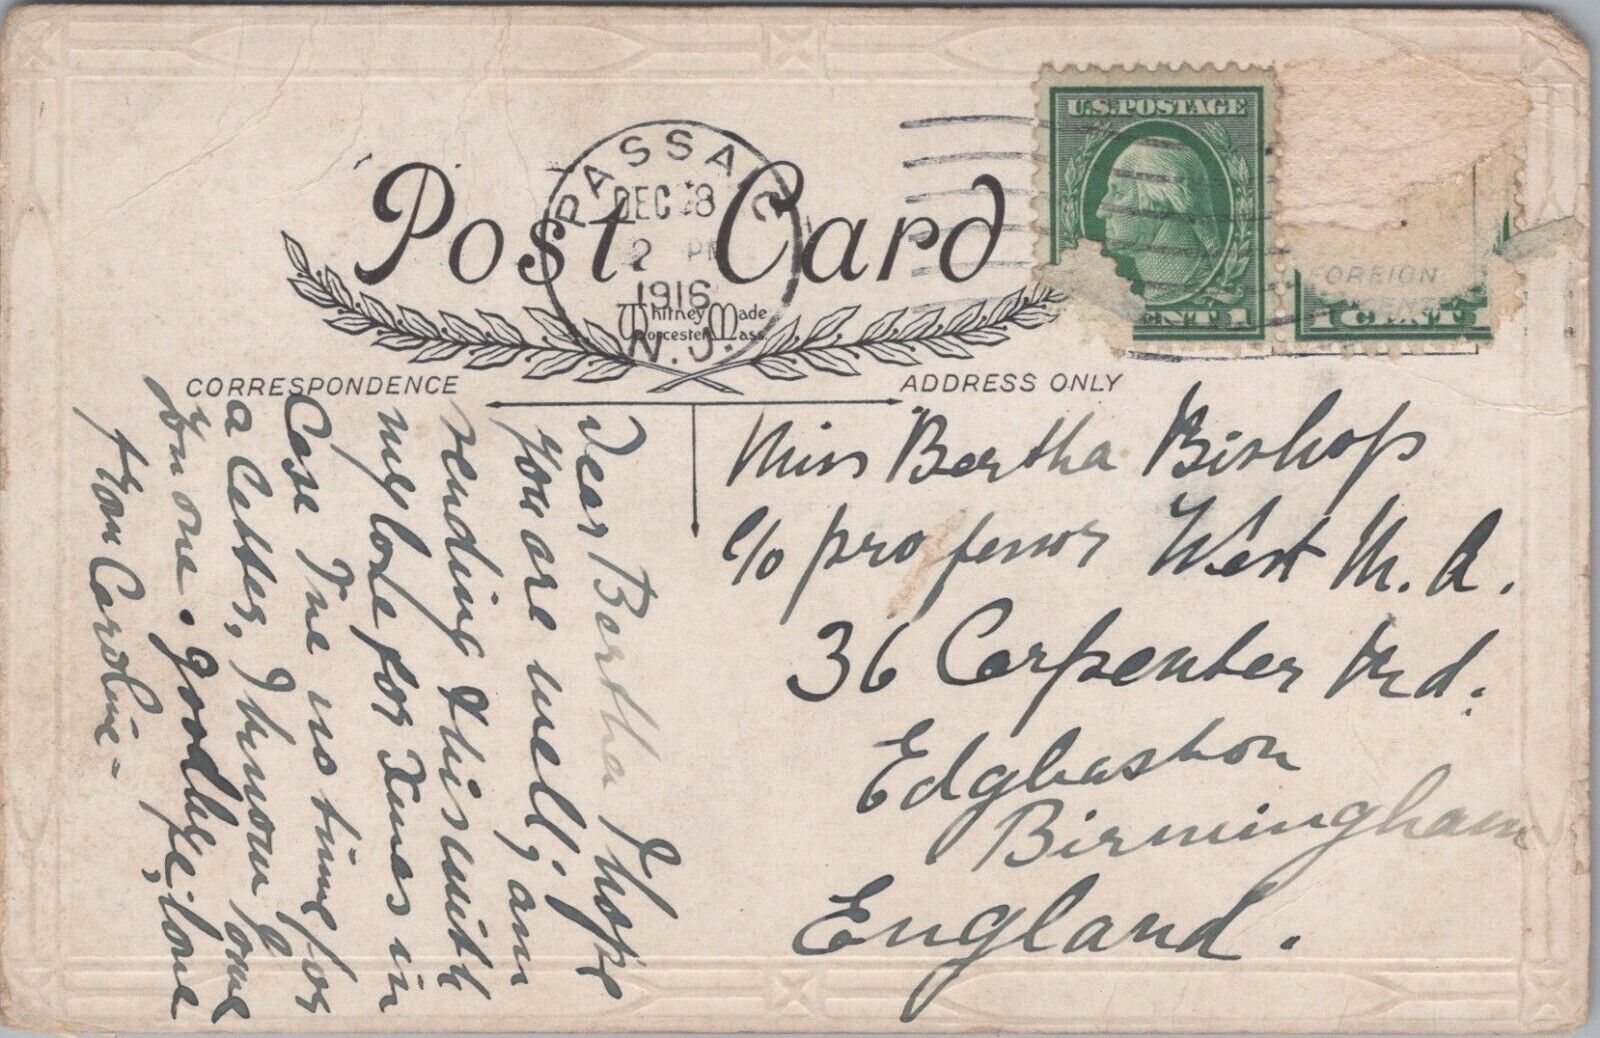 Post Card
PASSAIC
DEC 18
2 PM
1916
N.J.
Whitney Made
Worcester Mass
U.S. POSTAGE
CENT 1
FOREIGN
CENT
1 CENT
CORRESPONDENCE
ADDRESS ONLY
Dear Bertha I hope
you are well, am
sending this with
my love for Xmas in
Case I've no time for
a letter, I know I owe
you one. goodbye, love
from Caroline -
Miss Bertha Bishop
c/o professor West M.A.
36 Carpenter Rd.
Edgbaston
Birmingham
England.